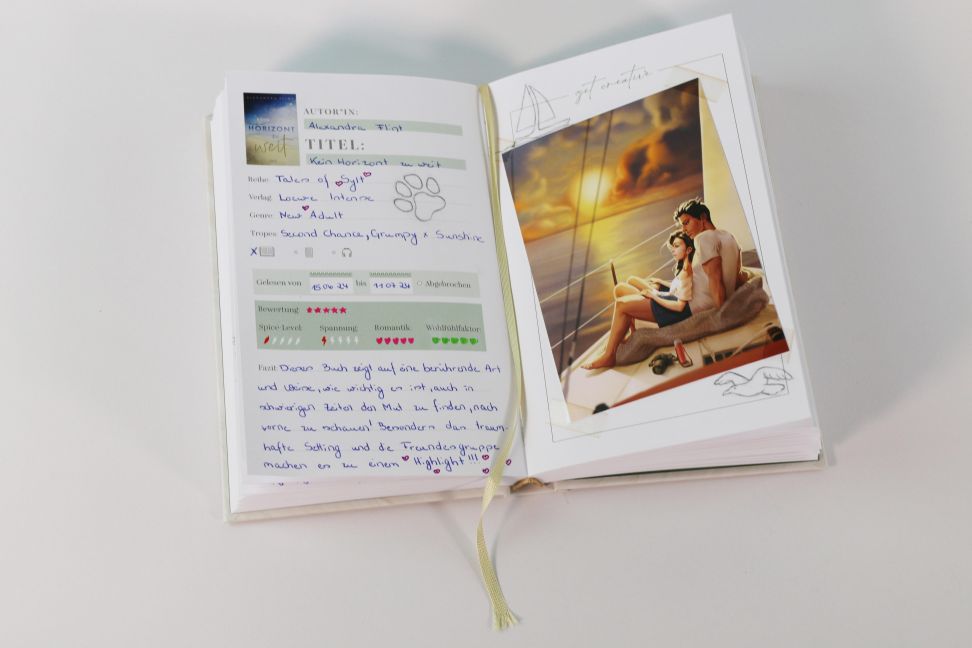 ALEXANDRA FLINT
HORIZONT
weit
AUTOR*IN:
Alexandra Flint
TITEL:
Kein Horizont zu weit
Reihe: Tales of Sylt
Verlag: Loewe Intense
Genre: New Adult
Tropes: Second Chance, Grumpy x Sunshine
X
Gelesen von 15.06.24 bis 11.07.24 Abgebrochen
Bewertung:
Spice-Level: Spannung: Romantik: Wohlfühlfaktor:
Fazit: Dieses Buch zeigt auf eine berührende Art
und Weise, wie wichtig es ist, auch in
schwierigen Zeiten den Mut zu finden, nach
vorne zu schauen! Besonders das traum-
hafte Setting und die Freundesgruppe
machen es zu einem Highlight!!!
get creative